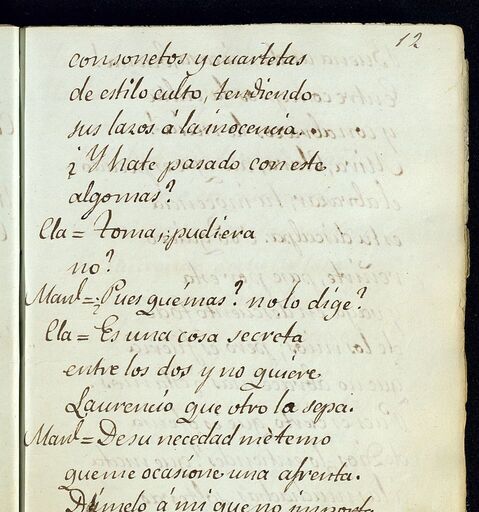 12
con sonetos y cuartetas
de estilo culto, tendiendo
sus lazos á la inocencia.
¿Y hate pasado con este
algo mas?
Cla = Toma, ¿pudiera
no?
Manl = ¿Pues que mas? no lo dige?
Cla = Es una cosa secreta
entre los dos y no quiere
Laurencio que otro la sepa.
Manl = De su necedad me temo
que me ocasione una afrenta.
Dimelo a mi que no importa